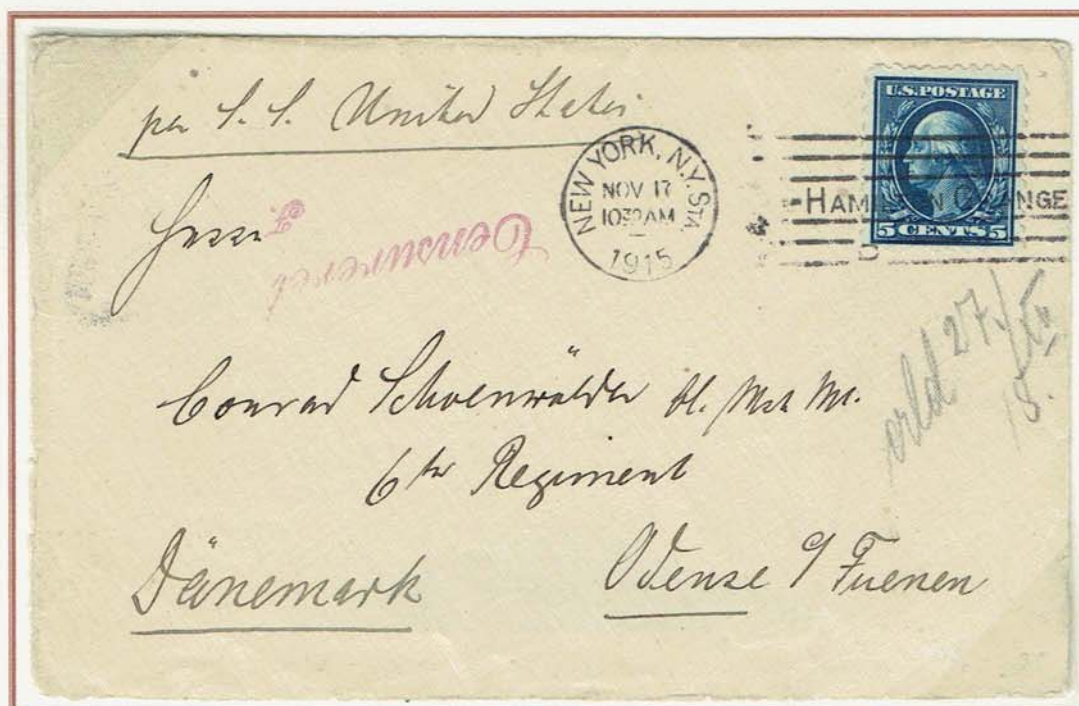 per S. S. United States
U.S. POSTAGE
5 CENTS 5
NEW YORK, N.Y. STA.
NOV 17
10 30 AM
1915
HAM N GRANGE
Herrn
Censureret
F.
Conrad Schoenwälder
6te Regiment
Odense Fuenen
Dänemark
erld 27./XII